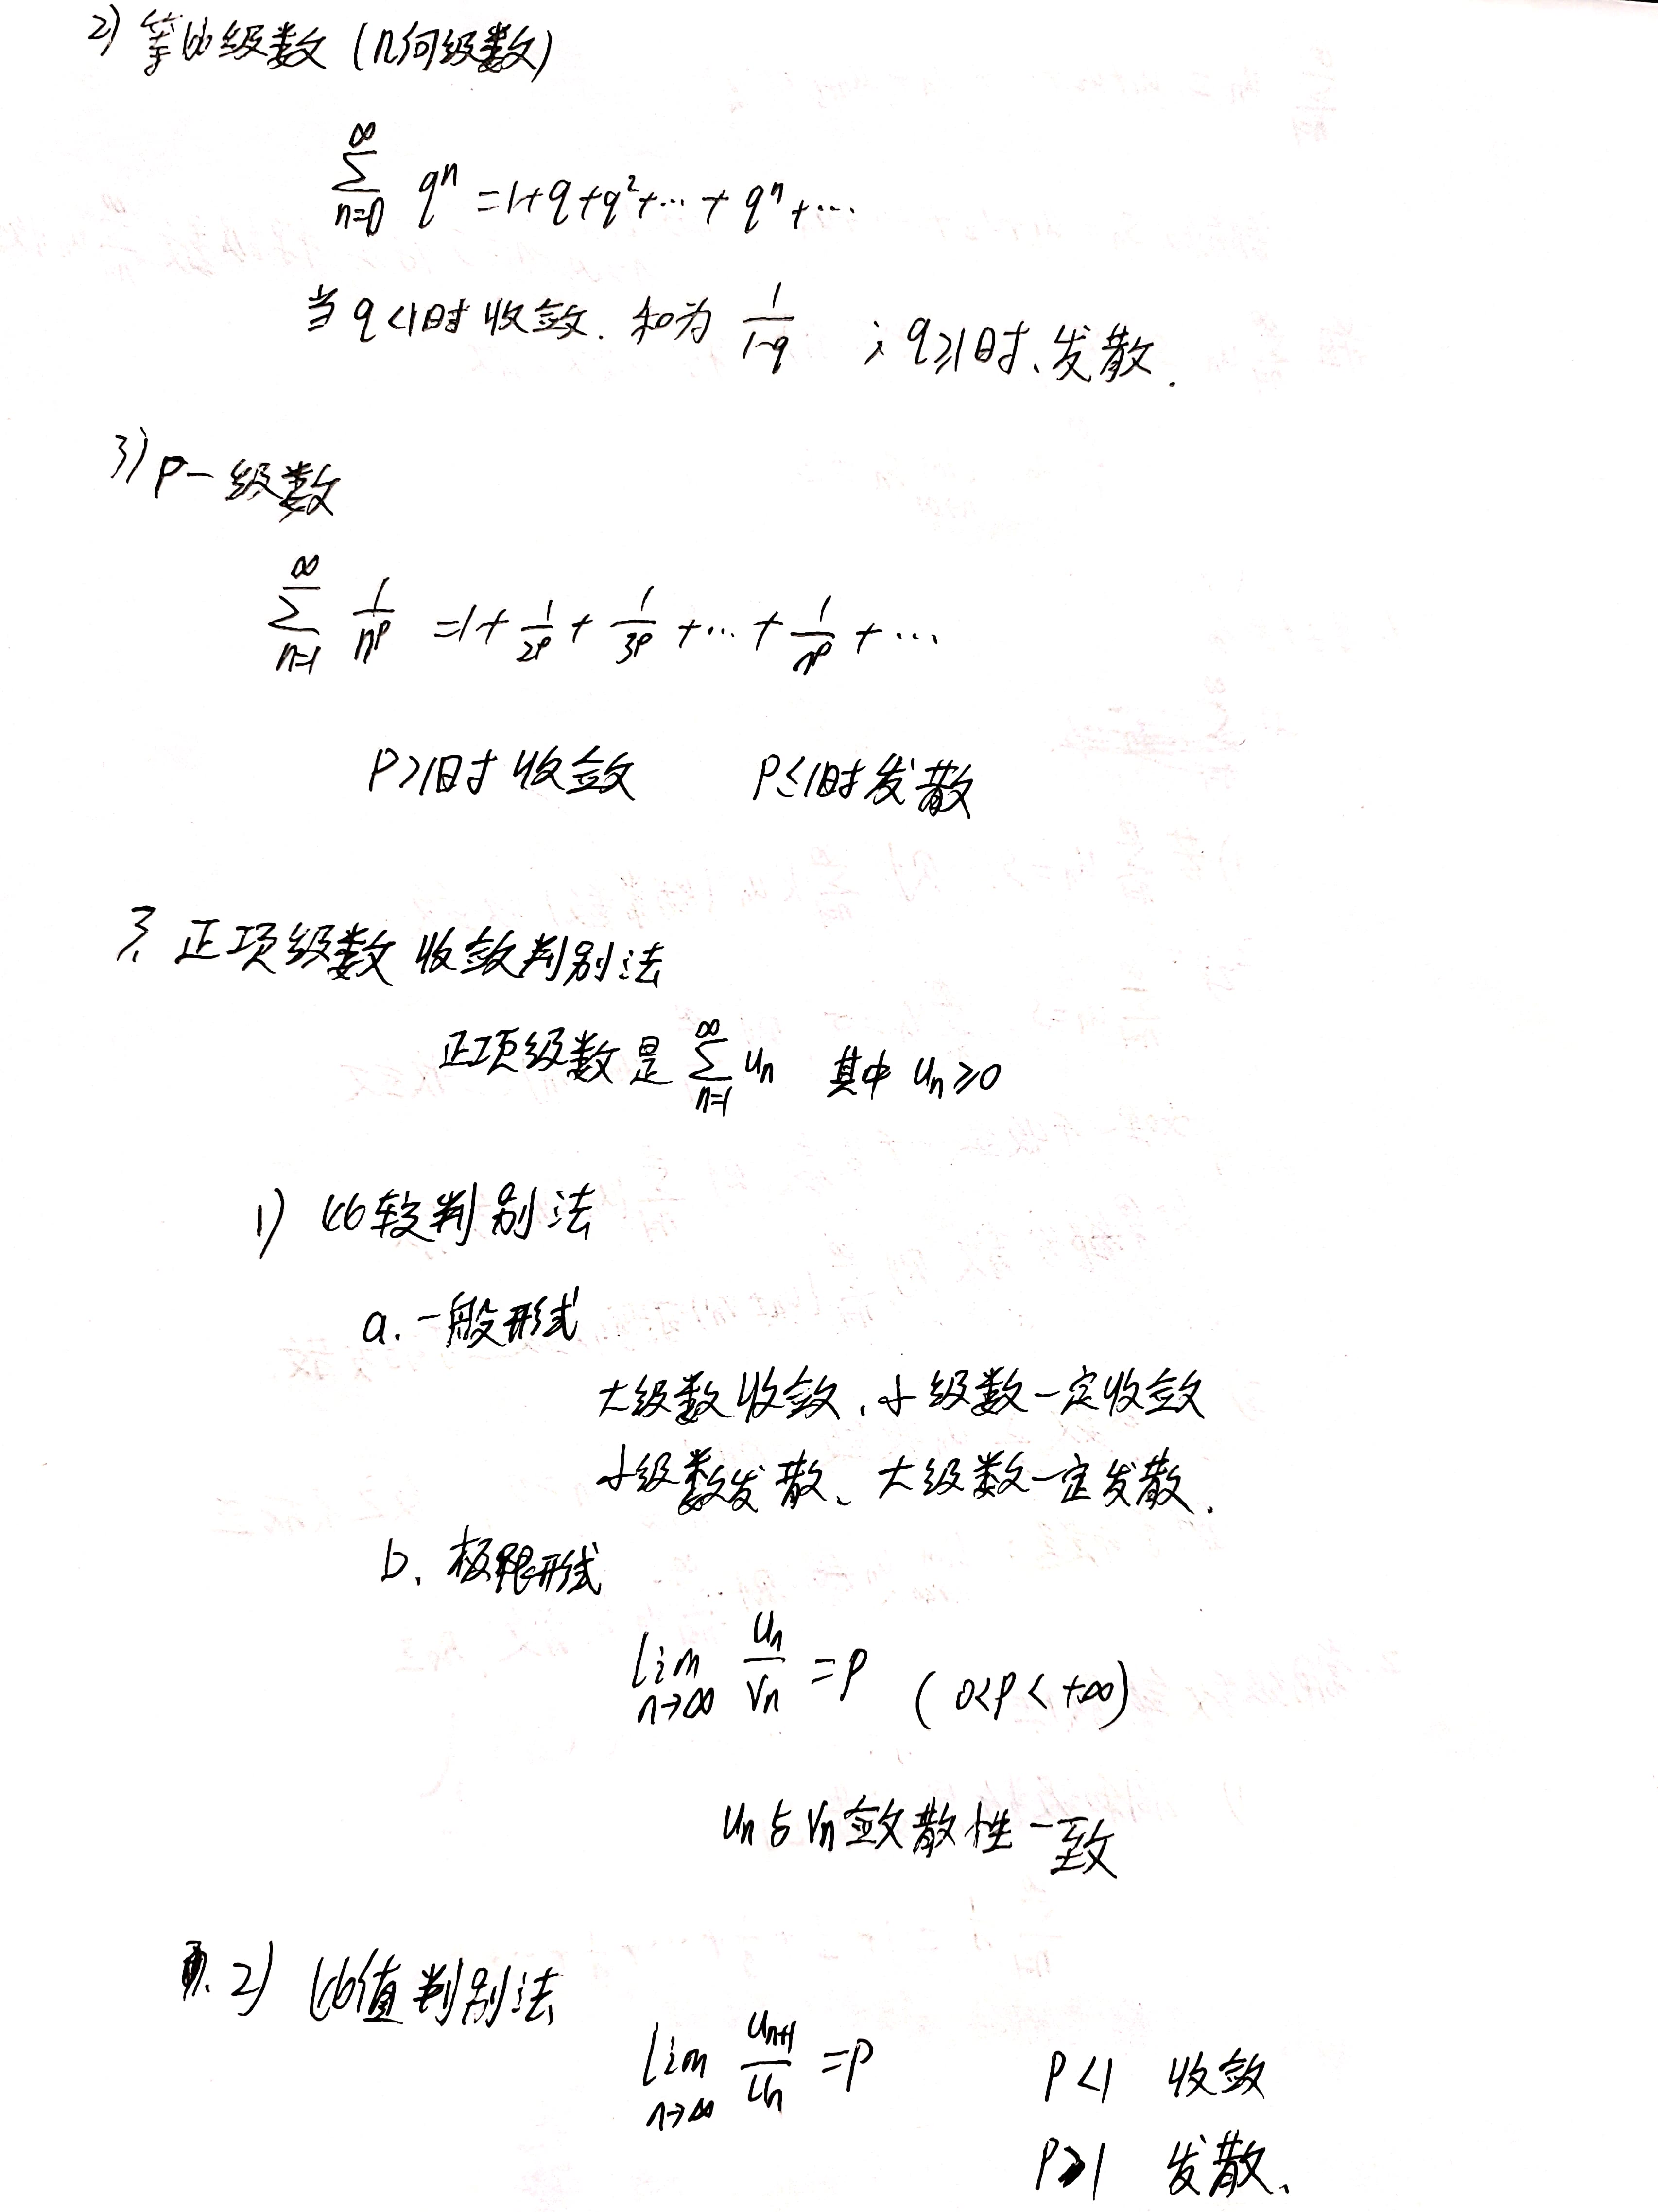 2) 等比级数 (几何级数)
∑_{n=0}^{∞} qⁿ = 1+q+q²+⋯+qⁿ+⋯
当 q<1时 收敛. 和为 1/(1-q) ; q≥1时、发散.
3) P-级数
∑_{n=1}^{∞} 1/n^p = 1 + 1/2^p + 1/3^p + ⋯ + 1/n^p + ⋯
P>1时 收敛 P≤1时发散
3. 正项级数 收敛判别法
正项级数是 ∑_{n=1}^{∞} uₙ 其中 uₙ≥0
1) 比较判别法
a. 一般形式
大级数收敛、小级数一定收敛
小级数发散、大级数一定发散.
b. 极限形式
lim_{n→∞} uₙ/vₙ = ρ (0<ρ<+∞)
uₙ与vₙ敛散性一致
2) 比值判别法
lim_{n→∞} uₙ₊₁/uₙ = ρ ρ<1 收敛
ρ>1 发散.